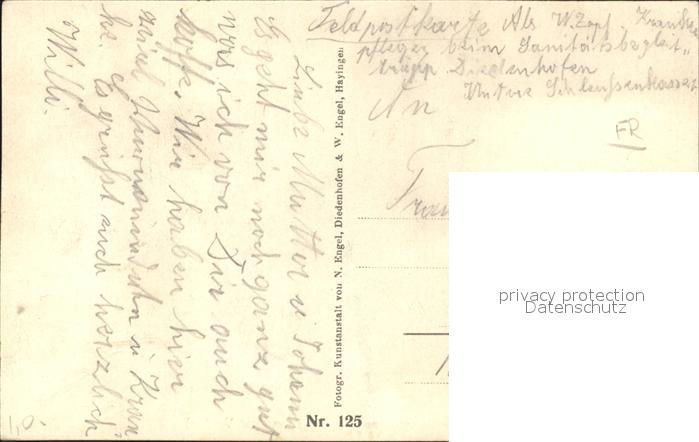 Feldpostkarte Abs. W. Zopf. Kranken
pfleger beim Sanitätsbegleit,,
trupp Diedenhofen
Untere Schleussenkaserne
An
FR
Frau
Liebe Mutter u Johann
Es geht mir noch ganz gut
was ich von Dir auch
hoffe. Wir haben hier
viel Verwundete u Kran
ke. Es grüsst euch herzlich
Willi.
Fotogr. Kunstanstalt von N. Engel, Diedenhofen & W. Engel, Hayingen
Nr. 125
privacy protection
Datenschutz